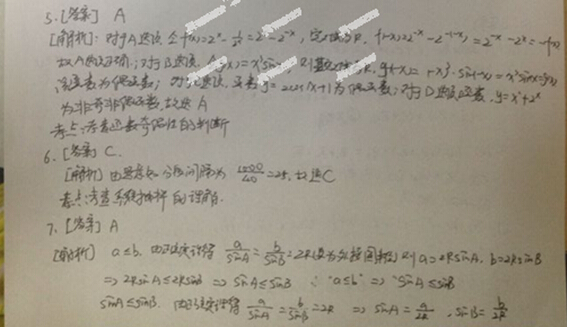 5. [答案] A
[解析]: 对于A选项, 令f(x)=2^x-1/2^x=2^x-2^-x, 定义域为R. f(-x)=2^-x-2^-(-x)=2^-x-2^x=-f(x)
故A选项正确; 对于B选项, g(x)=x³sinx, 则 R. g(-x)=(-x)³·sin(-x)=x³sinx=g(x)
函数为偶函数; 对于C选项, 函数y=2cosx+1为偶函数; 对于D选项, 函数, y=x²+2^x
为非奇非偶函数, 故选A
考点: 考查函数奇偶性的判断
6. [答案] C.
[解析] 由题意知, 分段间隔为 1000/40=25, 故选C
考点: 考查系统抽样的理解.
7. [答案] A
[解析] a≤b. 由正弦定理得 a/sinA=b/sinB=2R(设为外接圆半径) 则a=2RsinA, b=2RsinB
⇒ 2RsinA≤2RsinB ⇒ sinA≤sinB ∴ "a≤b" ⇒ "sinA≤sinB
sinA≤sinB. 由正弦定理得 a/sinA=b/sinB=2R ⇒ sinA=a/2R, sinB=b/2R